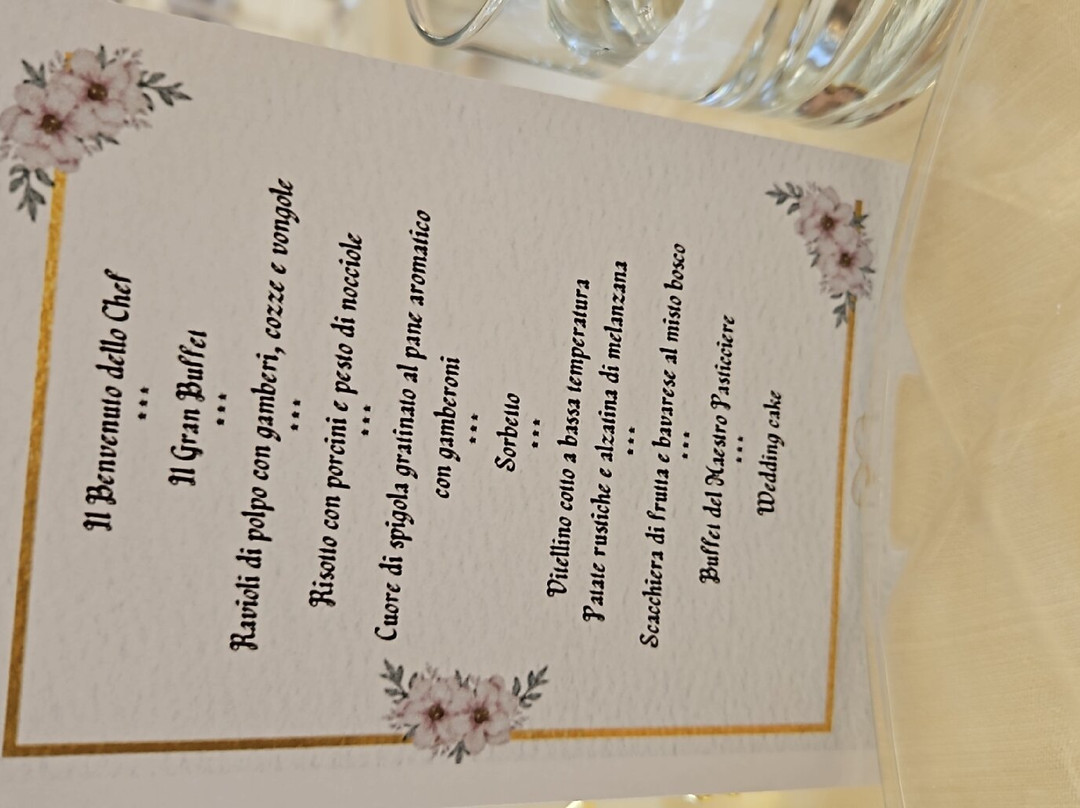 Il Benvenuto dello Chef
***
Il Gran Buffet
***
Ravioli di polpo con gamberi, cozze e vongole
***
Risotto con porcini e pesto di nocciole
***
Cuore di spigola gratinato al pane aromatico
con gamberoni
***
Sorbetto
***
Vitellino cotto a bassa temperatura
Patate rustiche e alzatina di melanzana
***
Scacchiera di frutta e bavarese al misto bosco
***
Buffet del Maestro Pasticciere
***
Wedding cake